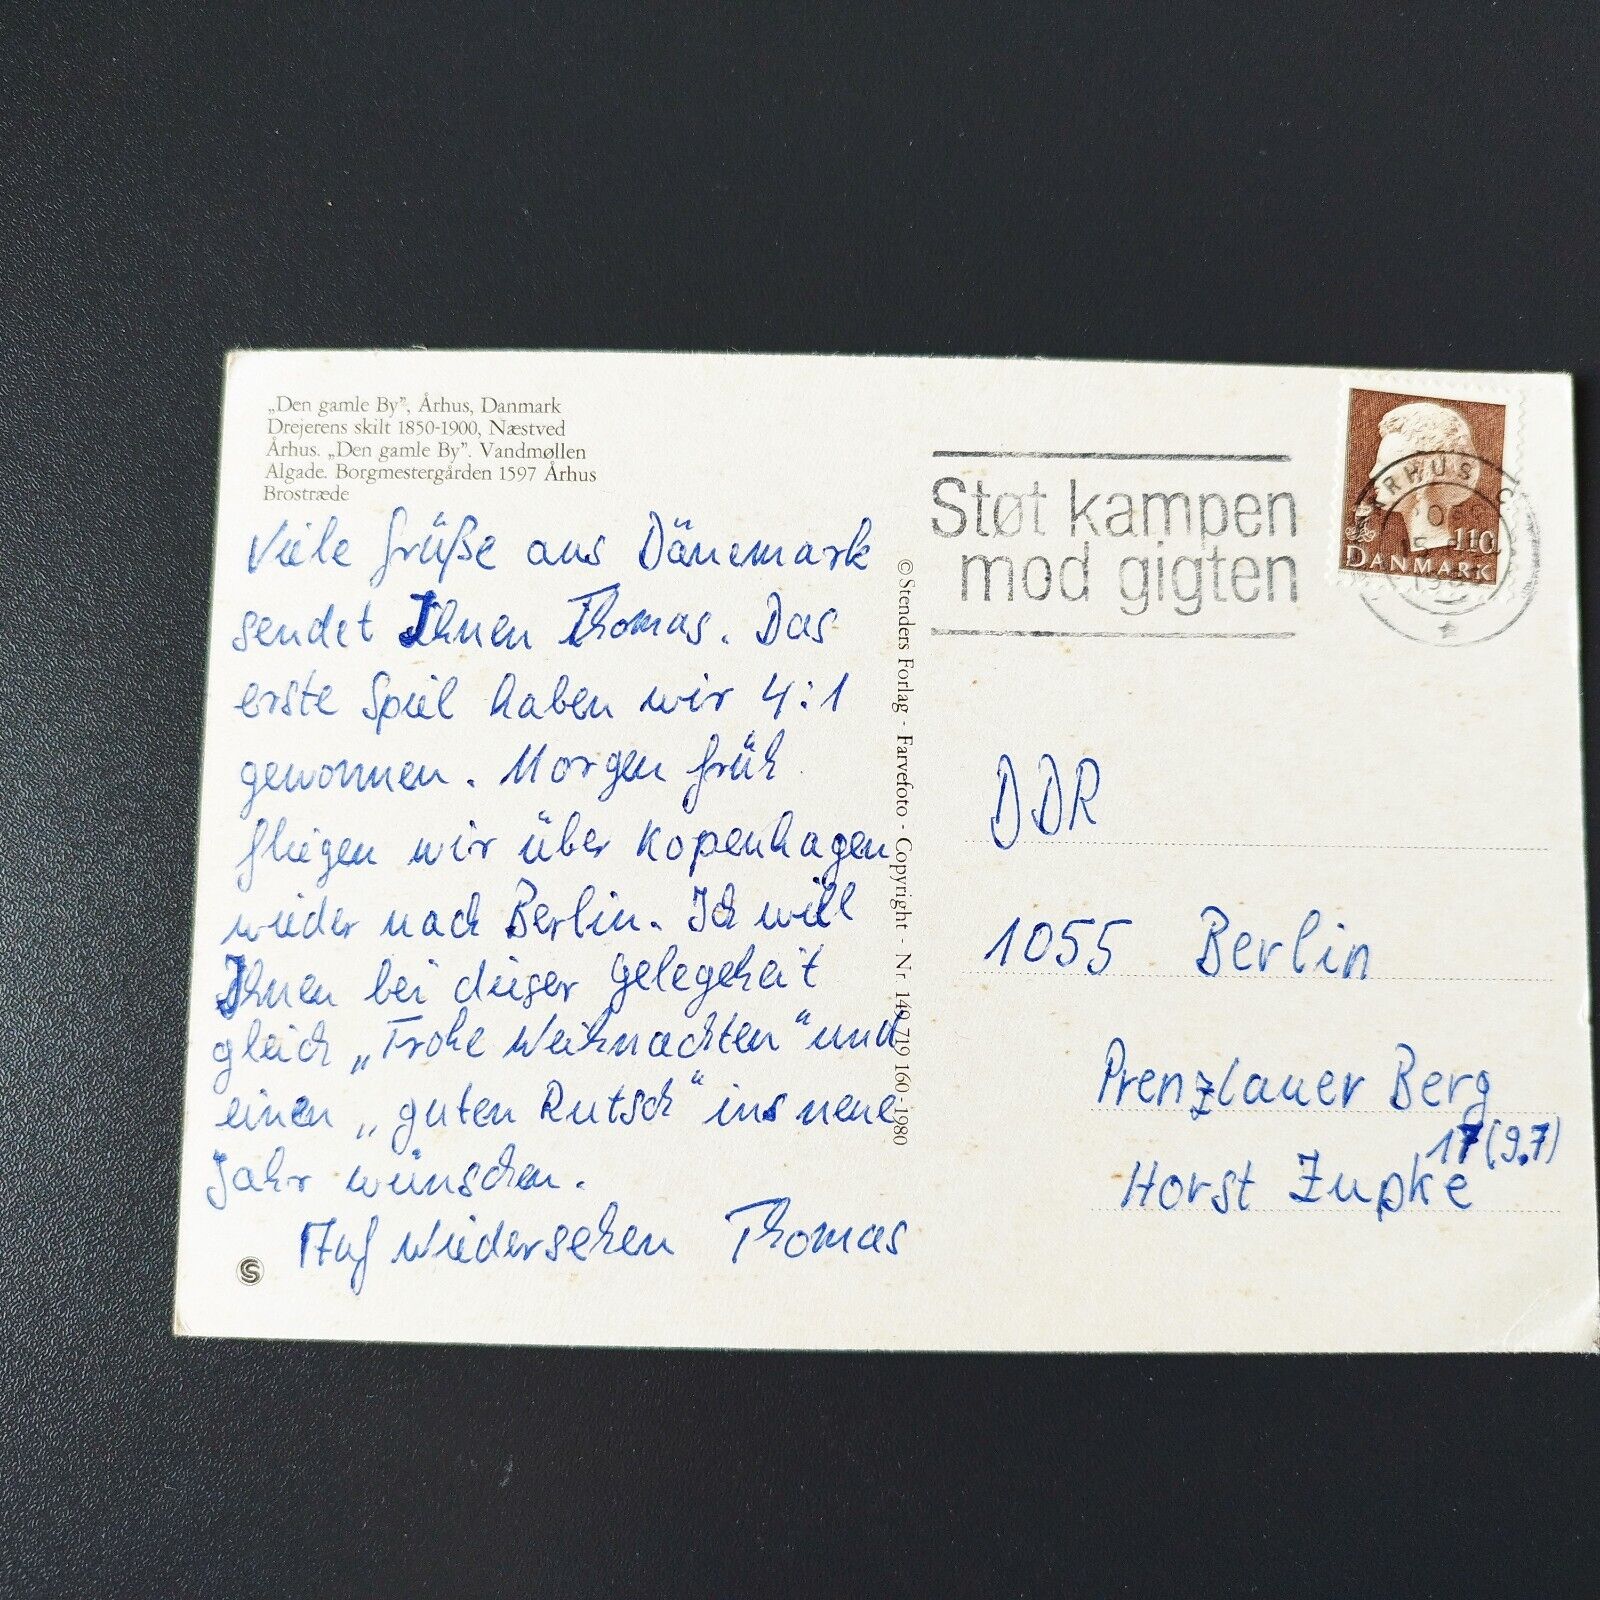 „Den gamle By”, Århus, Danmark
Drejerens skilt 1850-1900, Næstved
Århus. „Den gamle By”. Vandmøllen
Algade. Borgmestergården 1597 Århus
Brostræde
Viele Grüße aus Dänemark
sendet Ihnen Thomas. Das
erste Spiel haben wir 4:1
gewonnen. Morgen früh
fliegen wir über Kopenhagen
wieder nach Berlin. Ich will
Ihnen bei dieser Gelegeheit
gleich „Frohe Weihnachten“ und
einen „guten Rutsch“ ins neue
Jahr wünschen.
Auf Wiedersehen Thomas
© Stenders Forlag - Farvefoto - Copyright - Nr. 149 719 160 - 1980
Støt kampen
mod gigten
ÅRHUS C
110
DANMARK
DDR
1055 Berlin
Prenzlauer Berg
17 (9.7)
Horst Zupke